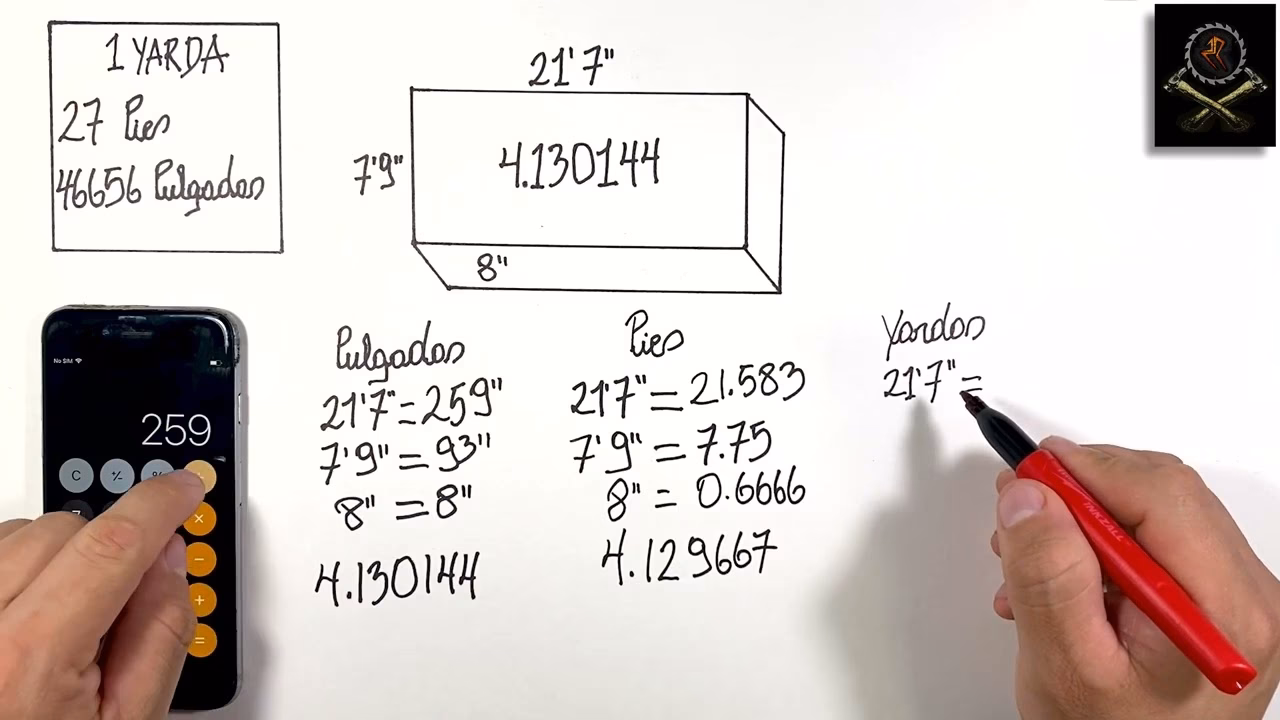 1 YARDA
27 Pies
46656 Pulgadas
21'7"
7'9"
4.130144
8"
No SIM
259
C
+/-
%
7
×
−
+
=
Pulgadas
21'7" = 259"
7'9" = 93"
8" = 8"
4.130144
Pies
21'7" = 21.583
7'9" = 7.75
8" = 0.6666
4.129667
Yardas
21'7" =
INKZALL